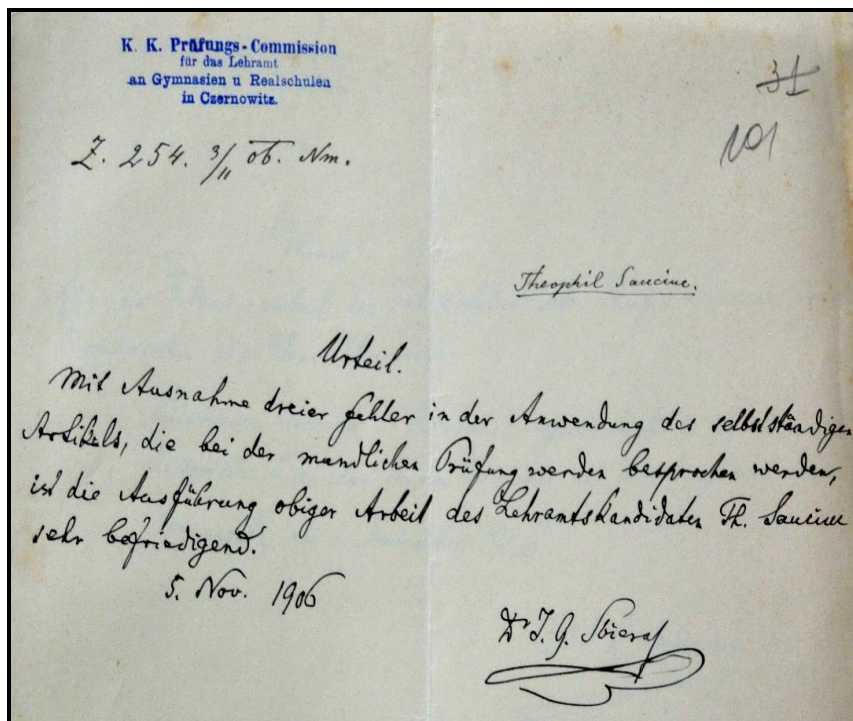 K. K. Prüfungs-Commission
für das Lehramt
an Gymnasien u Realschulen
in Czernowitz.
31
101
Z. 254. 3/11 06. Nm.
Theophil Sauciuc.
Urteil.
Mit Ausnahme dreier Fehler in der Anwendung des selbstständigen
Artikels, die bei der mündlichen Prüfung werden besprochen werden,
ist die Ausführung obiger Arbeit des Lehramtskandidaten Th. Sauciuc
sehr befriedigend.
5. Nov. 1906
Dr J. G. Sbiera